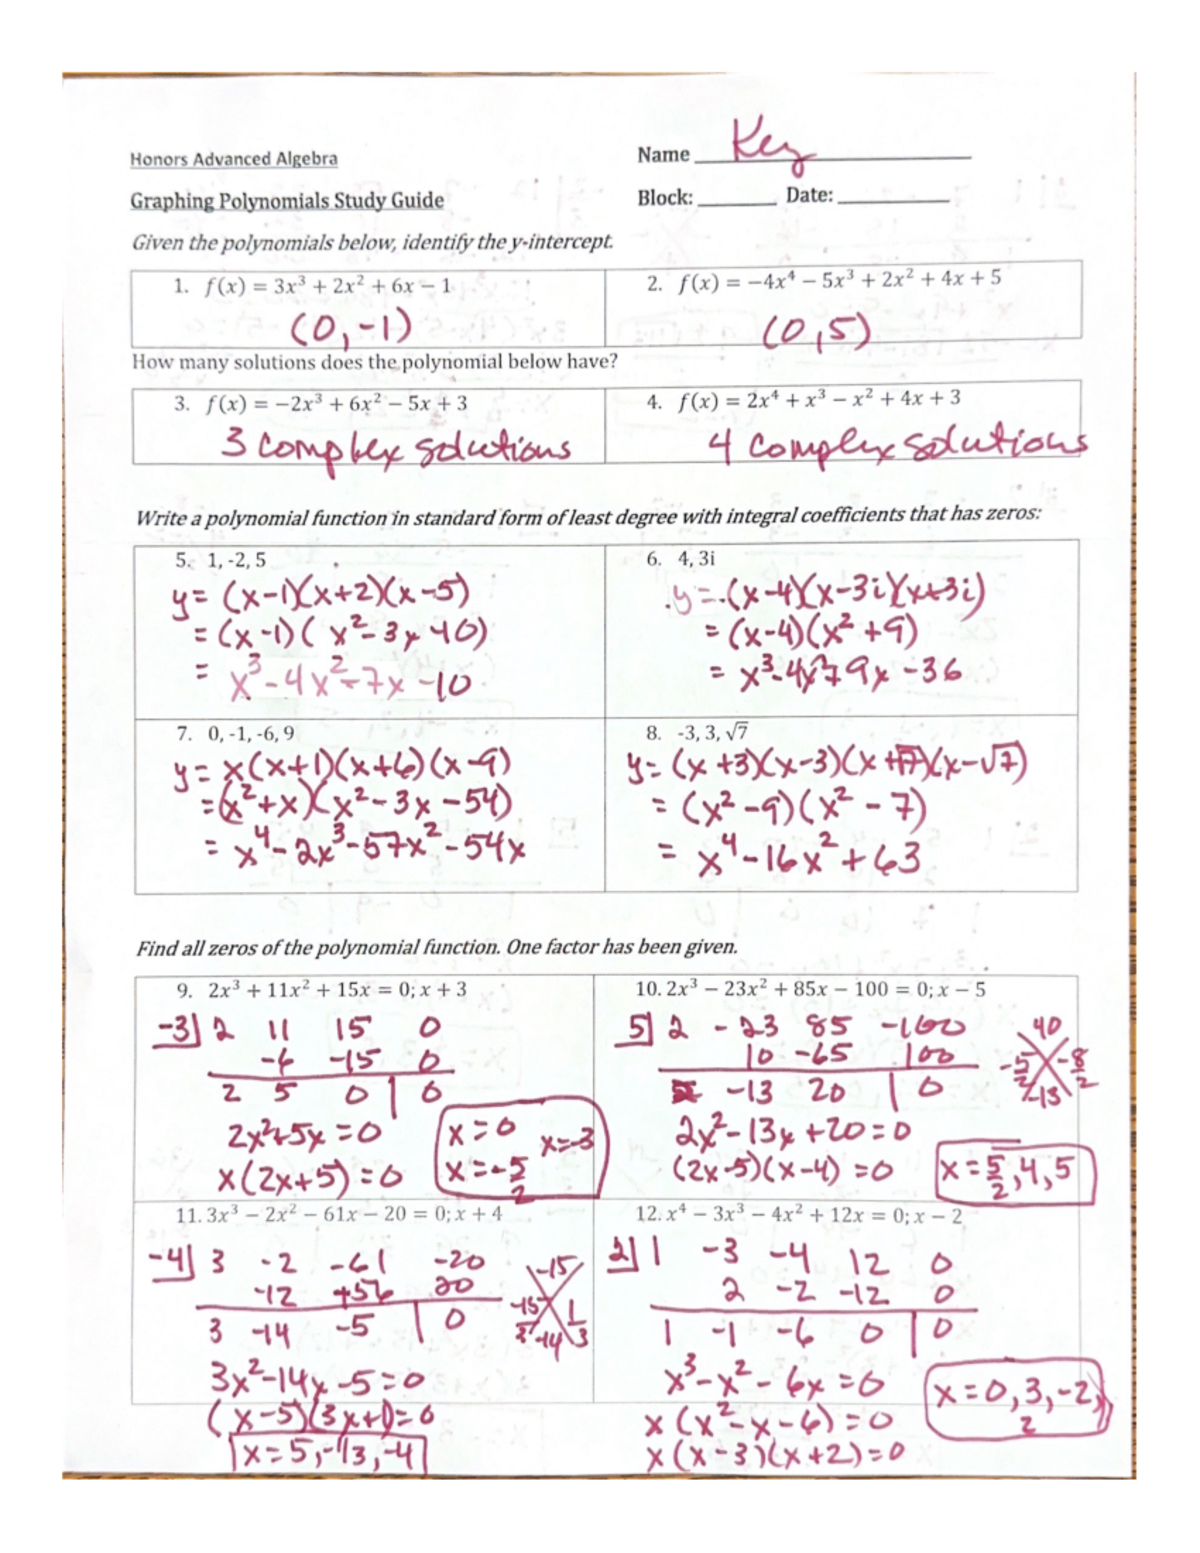 Honors Advanced Algebra
Name Key
Graphing Polynomials Study Guide
Block: Date:
Given the polynomials below, identify the y-intercept.
1. f(x) = 3x³ + 2x² + 6x − 1
(0,-1)
2. f(x) = −4x⁴ − 5x³ + 2x² + 4x + 5
(0,5)
How many solutions does the polynomial below have?
3. f(x) = −2x³ + 6x² − 5x + 3
3 complex solutions
4. f(x) = 2x⁴ + x³ − x² + 4x + 3
4 complex solutions
Write a polynomial function in standard form of least degree with integral coefficients that has zeros:
5. 1, -2, 5
y = (x-1)(x+2)(x-5)
= (x-1)( x²-3x-10)
= x³-4x²-7x-10
6. 4, 3i
y = (x-4)(x-3i)(x+3i)
= (x-4)(x²+9)
= x³-4x²+9x-36
7. 0, -1, -6, 9
y = x(x+1)(x+6)(x-9)
= (x²+x)(x²-3x-54)
= x⁴-2x³-57x²-54x
8. -3, 3, √7
y = (x+3)(x-3)(x+√7)(x-√7)
= (x²-9)(x²-7)
= x⁴-16x²+63
Find all zeros of the polynomial function. One factor has been given.
9. 2x³ + 11x² + 15x = 0; x + 3
-3| 2 11 15 0
-6 -15 0
2 5 0 | 0
2x²+5x=0
x(2x+5)=0
x=0 x=-3
x=-5/2
10. 2x³ − 23x² + 85x − 100 = 0; x − 5
5| 2 -23 85 -100
10 -65 100
-13 20 | 0
40
-5/2 -8/2
-13
2x²-13x+20=0
(2x-5)(x-4)=0
x=5/2,4,5
11. 3x³ − 2x² − 61x − 20 = 0; x + 4
-4| 3 -2 -61 -20
-12 +56 20
3 -14 -5 | 0
-15
-15/3 1/3
-14
3x²-14x-5=0
(x-5)(3x+1)=0
x=5,-1/3,-4
12. x⁴ − 3x³ − 4x² + 12x = 0; x − 2
2| 1 -3 -4 12 0
2 -2 -12 0
1 -1 -6 0 | 0
x³-x²-6x=0
x(x²-x-6)=0
x(x-3)(x+2)=0
x=0,3,-2,
2